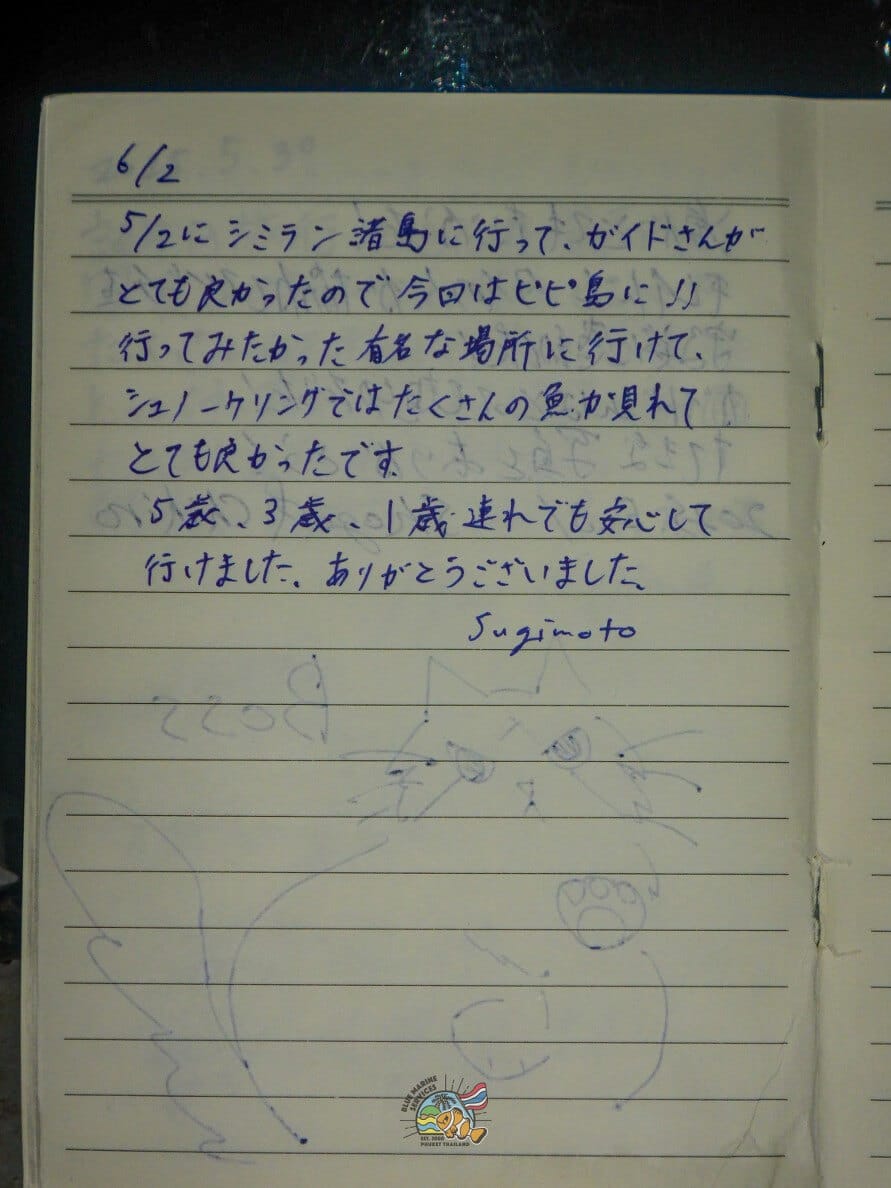 6/2
5/2にシミラン諸島に行って、ガイドさんが
とても良かったので今回はピピ島に!!
行ってみたかった有名な場所に行けて、
シュノーケリングではたくさんの魚が見れて
とても良かったです。
5歳、3歳、1歳連れでも安心して
行けました。ありがとうございました。
Sugimoto
Boss
BLUE MARINE
SERVICES
EST. 2000
PHUKET THAILAND